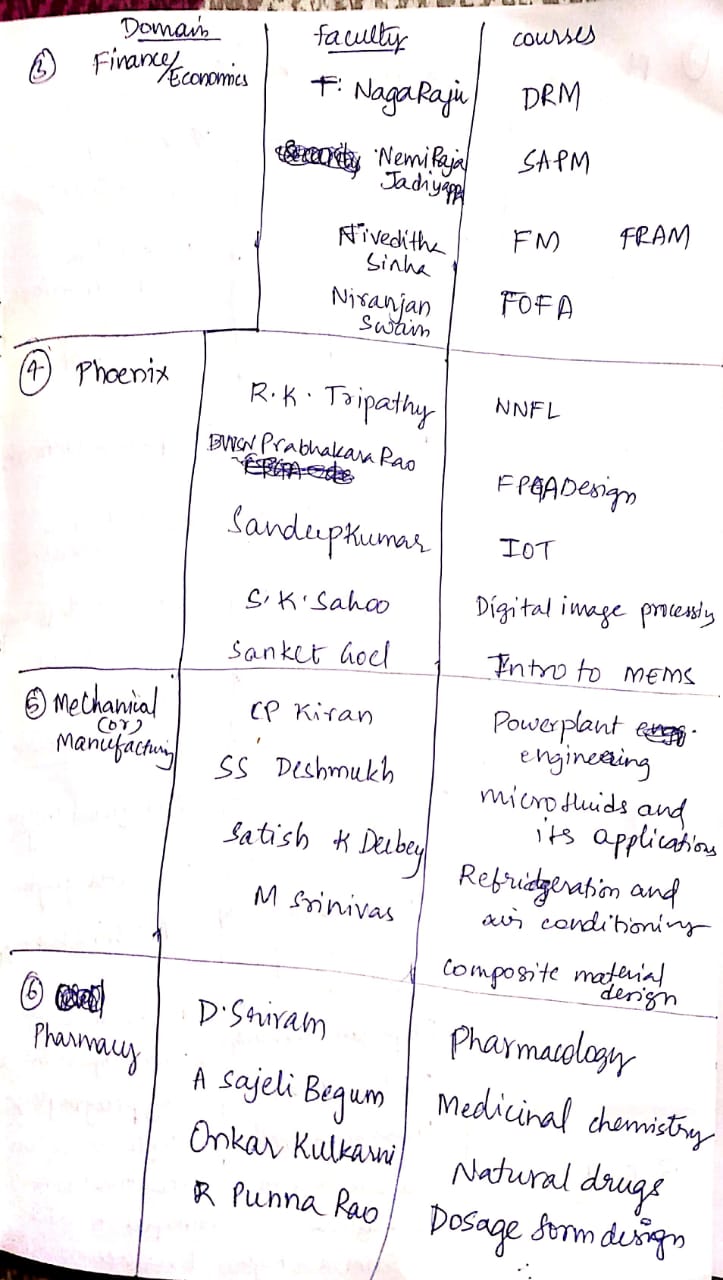 Domain faculty courses
③ Finance/Economics T. NagaRaju DRM
NemiRaja Jadiyappa SAPM
Niveditha Sinha FM FRAM
Niranjan Swain FOFA
④ Phoenix R.K. Tripathy NNFL
BVVSN Prabhakara Rao FPGA Design
Sandeep Kumar IOT
S.K. Sahoo Digital image processing
Sanket Goel Intro to MEMS
⑤ Mechanical (or) Manufacturing CP Kiran Powerplant engineering
SS Deshmukh microfluids and its applications
Satish K Deubey Refridgeration and air conditioning
M Srinivas composite material design
⑥ Pharmacy D. Sriram Pharmacology
A Sajeli Begum Medicinal chemistry
Onkar Kulkarni Natural drugs
R Punna Rao Dosage form design